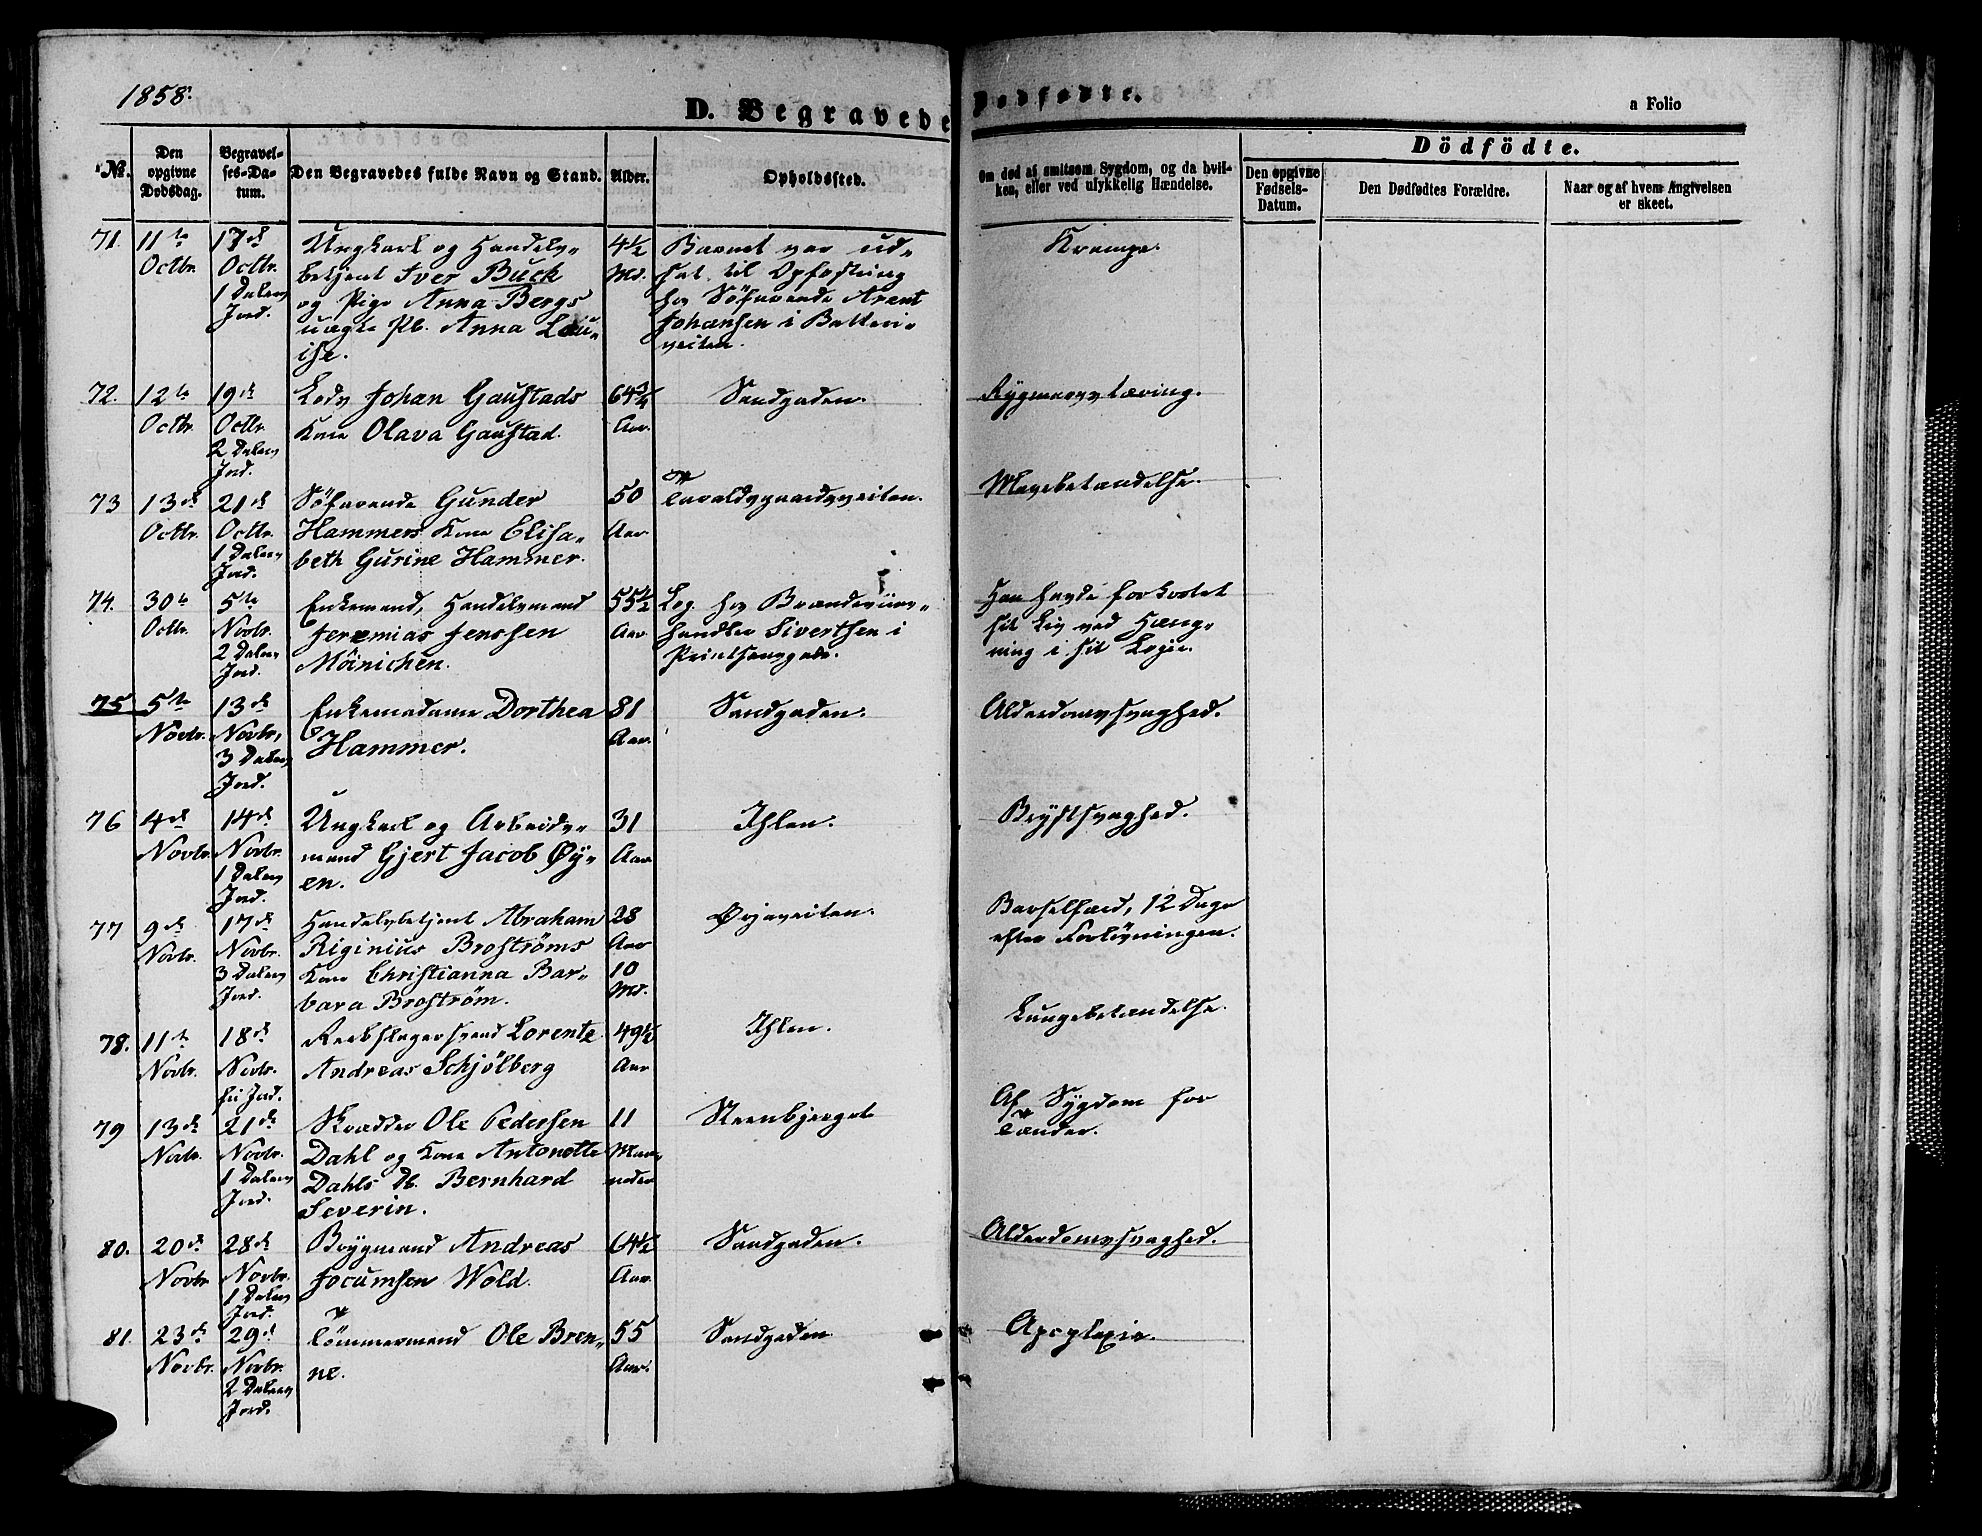 1858.
D. Begravede
Dødfødte.
a Folio
No.
Den opgivne Dødsdag.
Begravelses-Datum.
Den Begravedes fulde Navn og Stand.
Alder.
Opholdssted.
Om død af smitsom Sygdom, og da hvilken, eller ved ulykkelig Hændelse.
Dödfödte.
Den opgivne Fødsels-Datum.
Den Dødfødtes Forældre.
Naar og af hvem Angivelsen er skeet.
71. 11te 17de Ungkarl og Handels- 4½ Barnet var ud- Krampe.
Octbr. Octbr. betjent Iver Buck Md. sat til Opfostring
1 Dalers og Pige Anna Bergs hos Söfarende Arent
Jord. uægte Pb. Anna Lou- Johansen i Batteri-
ise. veiten.
72. 12te 19de Lods Johan Gaustads 64¾ Sandgaden. Rygmarvstæring.
Octbr. Octbr. Kone Olava Gaustad. Aar.
2 Dalers
Jord.
73 13de 21de Söfarende Gunder 50 Mavebetændelse.
Octbr. Octbr. Hammers Kone Elisa- Aar
1 Dalers beth Gurine Hammer.
Jord.
74. 30te 5te Enkemand, Handelsmand 55½ Log. hos Brændeviins- Han havde forkortet
Octbr. Novbr. Jeremias Jenssen Aar handler Sivertsen i sit Liv ved Hæng-
2 Dalers Möinichen. Printsensgade. ning i sit Logie.
Jord.
75 5te 13de Enkemadame Dorthea 81 Sandgaden. Alderdomssvaghed.
Novbr. Novbr. Hammer. Aar.
3 Dalers
Jord.
76 4de 14de Ungkarl og Arbeids- 31 Ihlen. Brystsvaghed.
Novbr. Novbr. mand Gjert Jacob Øy- Aar
1 Dalers en.
Jord.
77 9de 17de Handelsbetjent Abraham 28 Ørjaveiten. Barselfærd, 12 Dage
Novbr. Novbr. Riginius Broströms Aar efter Forløsningen.
3 Dalers Kone Christianna Bar- 10
Jord. bara Broström. Md.
78. 11te 18de Reebslagersvend Lorentz 49½ Ihlen. Lungebetændelse.
Novbr. Novbr. Andreas Schjølberg Aar
fri Jord.
79 13de 21de Skrædder Ole Pedersen 11 Steenbjerget Af Sygdom for
Novbr. Novbr. Dahl og Kone Antonette Maa- Tænder.
1 Dalers Dahls Db. Bernhard neder
Jord. Severin.
80. 20de 28de Brygmand Andreas 64½ Sandgaden. Alderdomssvaghed.
Novbr. Novbr. Jocumsen Wold. Aar.
1 Dalers
Jord.
81. 23de 29de Tömmermand Ole Bren- 55 Sandgaden Apoplexie.
Novbr. Novbr. ne. Aar.
2 Dalers
Jord.